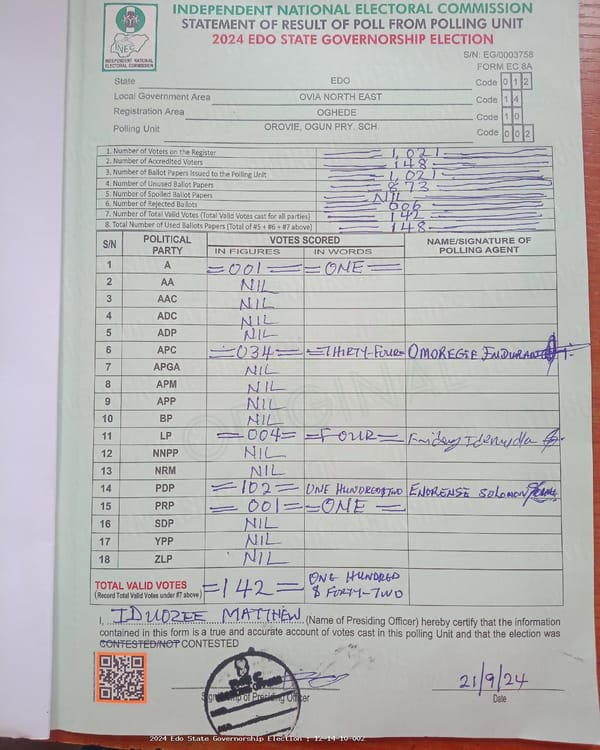 INDEPENDENT NATIONAL ELECTORAL COMMISSION
STATEMENT OF RESULT OF POLL FROM POLLING UNIT
2024 EDO STATE GOVERNORSHIP ELECTION
INEC
INDEPENDENT NATIONAL ELECTORAL COMMISSION
S/N: EG/0003758
FORM EC 8A
State EDO Code 0 1 2
Local Government Area OVIA NORTH EAST Code 1 4
Registration Area OGHEDE Code 1 0
Polling Unit OROVIE, OGUN PRY. SCH Code 0 0 2
1. Number of Voters on the Register 1,021
2. Number of Accredited Voters 148
3. Number of Ballot Papers Issued to the Polling Unit 1,021
4. Number of Unused Ballot Papers 873
5. Number of Spoiled Ballot Papers NIL
6. Number of Rejected Ballots 006
7. Number of Total Valid Votes (Total Valid Votes cast for all parties) 142
8. Total Number of Used Ballots Papers (Total of #5 + #6 + #7 above) 148
S/N POLITICAL PARTY VOTES SCORED NAME/SIGNATURE OF POLLING AGENT
IN FIGURES IN WORDS
1 A =001= =ONE=
2 AA NIL
3 AAC NIL
4 ADC NIL
5 ADP NIL
6 APC =034= =THIRTY-FOUR= OMOREGIE
7 APGA NIL
8 APM NIL
9 APP NIL
10 BP NIL
11 LP =004= =FOUR= Friday
12 NNPP NIL
13 NRM NIL
14 PDP =102= ONE HUNDRED & TWO SOLOMON
15 PRP =001= =ONE=
16 SDP NIL
17 YPP NIL
18 ZLP NIL
TOTAL VALID VOTES =142= ONE HUNDRED & FORTY-TWO
(Record Total Valid Votes under #7 above)
ORIGINAL
I, IDUOZEE MATTHEW (Name of Presiding Officer) hereby certify that the information
contained in this form is a true and accurate account of votes cast in this polling Unit and that the election was
CONTESTED/NOT CONTESTED
21/9/24
Signature of Presiding Officer Date
2024 Edo State Governorship Election : 12-14-10-002